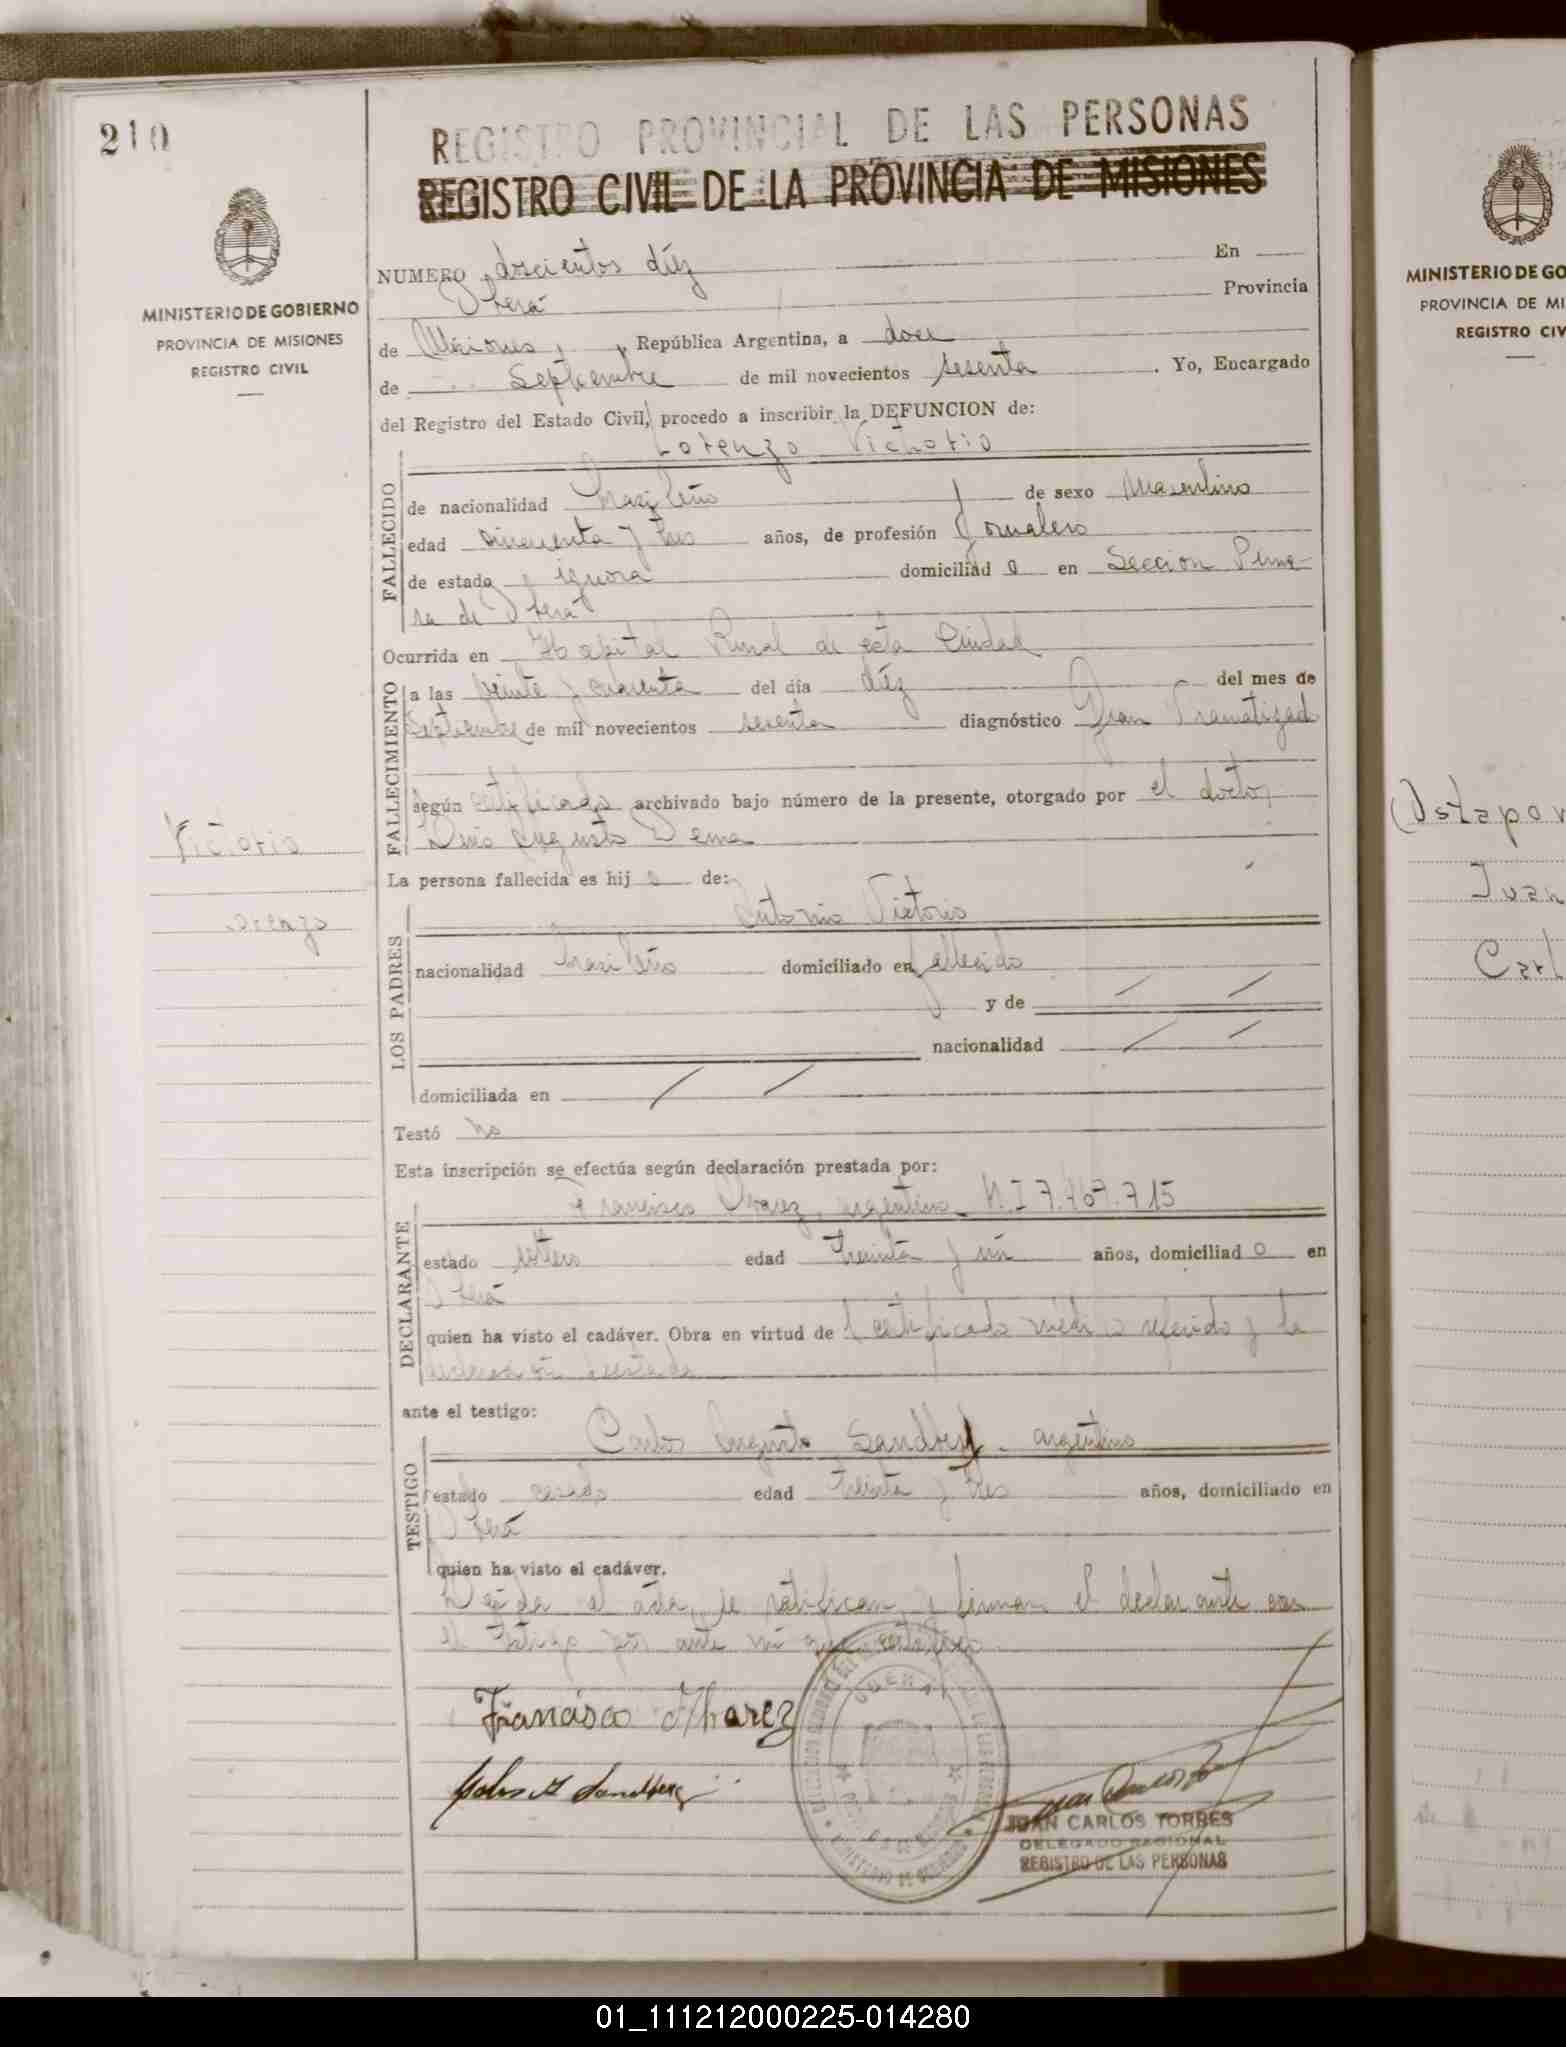 210
REGISTRO PROVINCIAL DE LAS PERSONAS
REGISTRO CIVIL DE LA PROVINCIA DE MISIONES
MINISTERIO DE GOBIERNO
PROVINCIA DE MISIONES
REGISTRO CIVIL
NUMERO doscientos diéz En
Oberá Provincia
de Misiones, República Argentina, a doce
de Septiembre de mil novecientos sesenta. Yo, Encargado
del Registro del Estado Civil, procedo a inscribir la DEFUNCION de:
Lorenzo Victorio
FALLECIDO
de nacionalidad brasileño de sexo Masculino
edad cincuenta y tres años, de profesión Jornalero
de estado ignora domiciliad o en Sección Prime
ra de Oberá
Ocurrida en Hospital Rural de esta Ciudad
FALLECIMIENTO
a las veinte y cuarenta del día diéz del mes de
Septiembre de mil novecientos sesenta diagnóstico Gran Tramatizad
según certificado archivado bajo número de la presente, otorgado por el doctor
Luis Augusto Dema
Victorio
Lorenzo
La persona fallecida es hij o de:
LOS PADRES
Antonio Victorio
nacionalidad brasileño domiciliado en fallecido
y de
nacionalidad
domiciliada en
Testó No
Esta inscripción se efectúa según declaración prestada por:
DECLARANTE
Francisco Alvarez, argentino M.I 7.467.715
estado soltero edad treinta y un años, domiciliad o en
Oberá
quien ha visto el cadáver. Obra en virtud del certificado médico referido y la
declaración prestada
ante el testigo:
TESTIGO
Carlos Augusto Sandberg. argentino
estado casado edad treinta y tres años, domiciliado en
Oberá
quien ha visto el cadáver.
Leída el acta, se ratifican y firman el declarante con
el testigo por ante mí que certifico.
Francisco Alvarez
Carlos A Sandberg
OBERA
JUAN CARLOS TORRES
DELEGADO REGIONAL
REGISTRO DE LAS PERSONAS
MINISTERIO DE GO
PROVINCIA DE MI
REGISTRO CIV
Ostapov
Juan
Carl
01_111212000225-014280